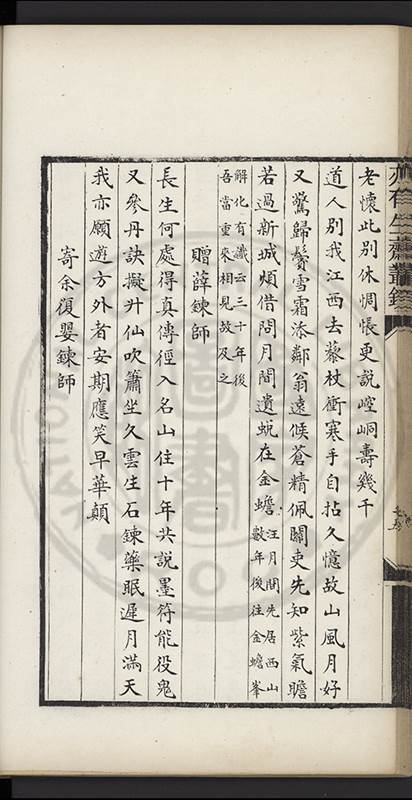 老懷此別休惆悵更說崆峒壽幾千
道人別我江西去藜杖衝寒手自拈久憶故山風月好
又驚歸鬢雪霜添鄰翁遠候蒼精佩關吏先知紫氣瞻
若過新城煩借問月間遺蛻在金蟾汪月間先居西山數年後往金蟾峯
解化有讖云三十年後吾當重來相見故及之
贈薛鍊師
長生何處得真傳徑入名山住十年共說墨符能役鬼
又參丹訣擬升仙吹簫坐久雲生石鍊藥眠遲月滿天
我亦願遊方外者安期應笑早華顛
寄余復嬰鍊師